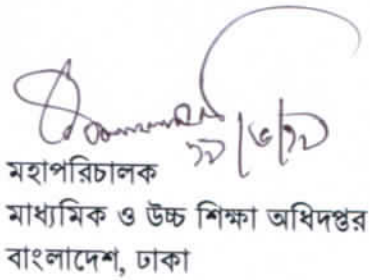 মহাপরিচালক
মাধ্যমিক ও উচ্চ শিক্ষা অধিদপ্তর
বাংলাদেশ, ঢাকা